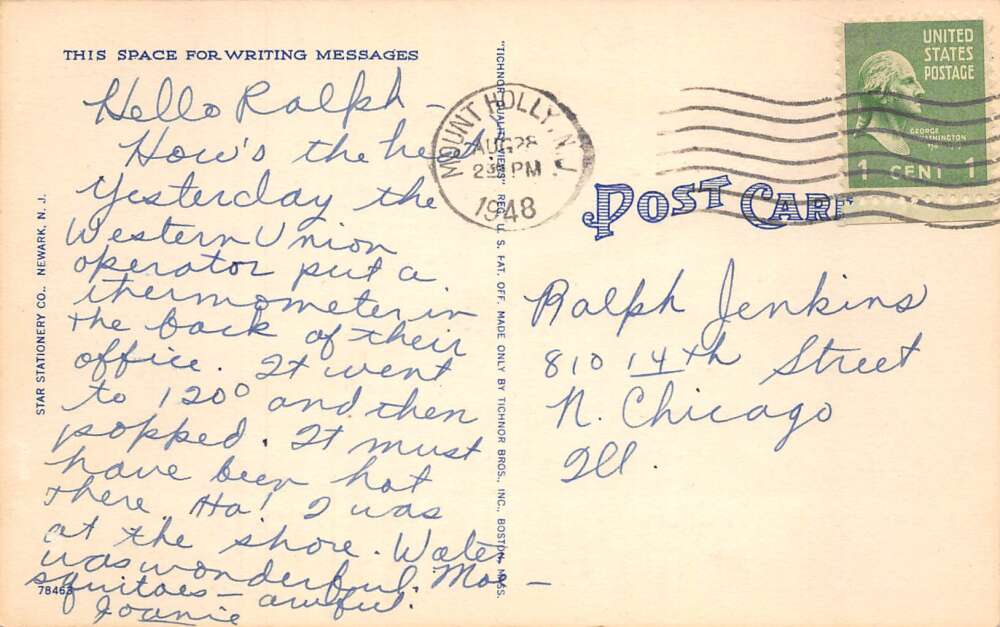 THIS SPACE FOR WRITING MESSAGES
Hello Ralph –
How's the heat?
Yesterday the
Western Union
operator put a
thermometer in
the back of their
office. It went
to 120° and then
popped. It must
have been hot
there. Ha! I was
at the shore. Water
was wonderful. Mos-
quitoes – awful.
Joanie
78463
STAR STATIONERY CO., NEWARK, N. J.
"TICHNOR QUALITY VIEWS" REG. U. S. PAT. OFF. MADE ONLY BY TICHNOR BROS., INC., BOSTON, MASS.
MOUNT HOLLY, N.J.
AUG 28
PM
1948
UNITED
STATES
POSTAGE
GEORGE
WASHINGTON
1 CENT 1
POST CARD
Ralph Jenkins
810 14th Street
N. Chicago
Ill.